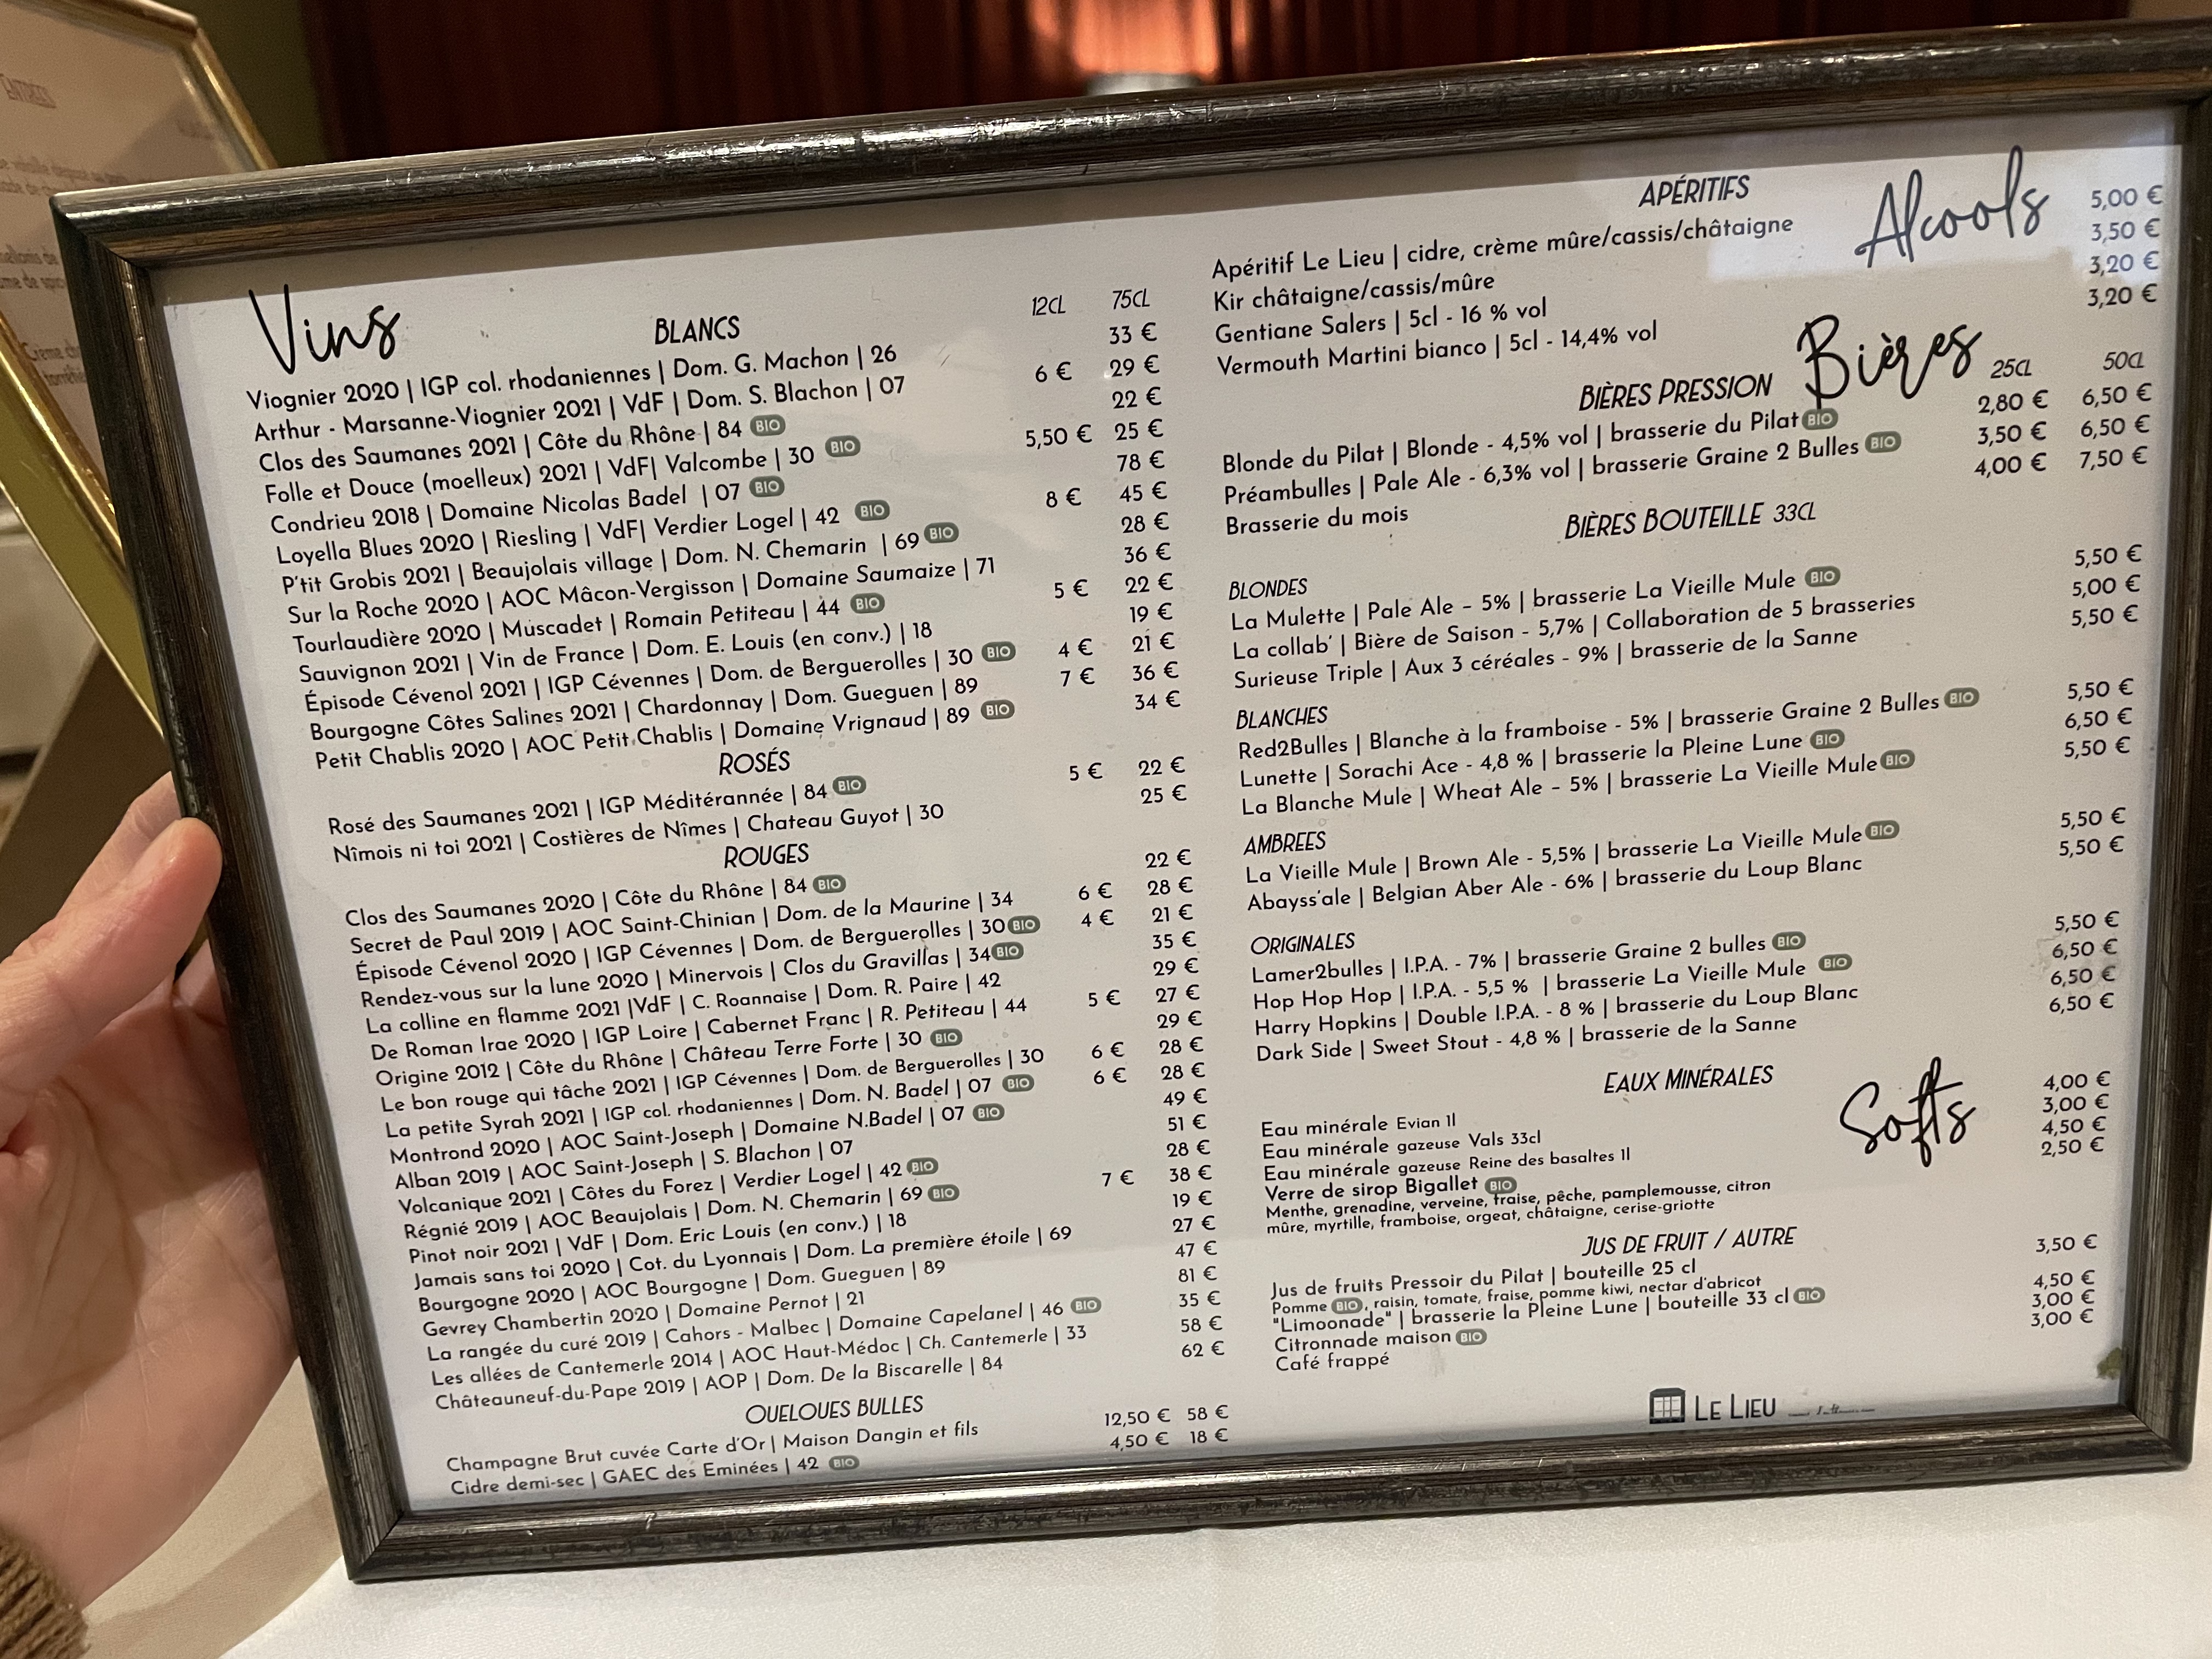 ENTRÉES
Vins
BLANCS 12CL 75CL
Viognier 2020 | IGP col. rhodaniennes | Dom. G. Machon | 26 33 €
Arthur - Marsanne-Viognier 2021 | VdF | Dom. S. Blachon | 07 6 € 29 €
Clos des Saumanes 2021 | Côte du Rhône | 84 BIO 22 €
Folle et Douce (moelleux) 2021 | VdF| Valcombe | 30 BIO 5,50 € 25 €
Condrieu 2018 | Domaine Nicolas Badel | 07 BIO 78 €
Loyella Blues 2020 | Riesling | VdF| Verdier Logel | 42 BIO 8 € 45 €
P'tit Grobis 2021 | Beaujolais village | Dom. N. Chemarin | 69 BIO 28 €
Sur la Roche 2020 | AOC Mâcon-Vergisson | Domaine Saumaize | 71 36 €
Tourlaudière 2020 | Muscadet | Romain Petiteau | 44 BIO 5 € 22 €
Sauvignon 2021 | Vin de France | Dom. E. Louis (en conv.) | 18 19 €
Épisode Cévenol 2021 | IGP Cévennes | Dom. de Berguerolles | 30 BIO 4 € 21 €
Bourgogne Côtes Salines 2021 | Chardonnay | Dom. Gueguen | 89 7 € 36 €
Petit Chablis 2020 | AOC Petit Chablis | Domaine Vrignaud | 89 BIO 34 €
ROSÉS
Rosé des Saumanes 2021 | IGP Méditérannée | 84 BIO 5 € 22 €
Nîmois ni toi 2021 | Costières de Nîmes | Chateau Guyot | 30 25 €
ROUGES
Clos des Saumanes 2020 | Côte du Rhône | 84 BIO 22 €
Secret de Paul 2019 | AOC Saint-Chinian | Dom. de la Maurine | 34 6 € 28 €
Épisode Cévenol 2020 | IGP Cévennes | Dom. de Berguerolles | 30 BIO 4 € 21 €
Rendez-vous sur la lune 2020 | Minervois | Clos du Gravillas | 34 BIO 35 €
La colline en flamme 2021 |VdF | C. Roannaise | Dom. R. Paire | 42 29 €
De Roman Irae 2020 | IGP Loire | Cabernet Franc | R. Petiteau | 44 5 € 27 €
Origine 2012 | Côte du Rhône | Château Terre Forte | 30 BIO 29 €
Le bon rouge qui tâche 2021 | IGP Cévennes | Dom. de Berguerolles | 30 6 € 28 €
La petite Syrah 2021 | IGP col. rhodaniennes | Dom. N. Badel | 07 BIO 6 € 28 €
Montrond 2020 | AOC Saint-Joseph | Domaine N.Badel | 07 BIO 49 €
Alban 2019 | AOC Saint-Joseph | S. Blachon | 07 51 €
Volcanique 2021 | Côtes du Forez | Verdier Logel | 42 BIO 28 €
Régnié 2019 | AOC Beaujolais | Dom. N. Chemarin | 69 BIO 7 € 38 €
Pinot noir 2021 | VdF | Dom. Eric Louis (en conv.) | 18 19 €
Jamais sans toi 2020 | Cot. du Lyonnais | Dom. La première étoile | 69 27 €
Bourgogne 2020 | AOC Bourgogne | Dom. Gueguen | 89 47 €
Gevrey Chambertin 2020 | Domaine Pernot | 21 81 €
La rangée du curé 2019 | Cahors - Malbec | Domaine Capelanel | 46 BIO 35 €
Les allées de Cantemerle 2014 | AOC Haut-Médoc | Ch. Cantemerle | 33 58 €
Châteauneuf-du-Pape 2019 | AOP | Dom. De la Biscarelle | 84 62 €
QUELQUES BULLES
Champagne Brut cuvée Carte d'Or | Maison Dangin et fils 12,50 € 58 €
Cidre demi-sec | GAEC des Eminées | 42 BIO 4,50 € 18 €
Alcools
APÉRITIFS
Apéritif Le Lieu | cidre, crème mûre/cassis/châtaigne 5,00 €
Kir châtaigne/cassis/mûre 3,50 €
Gentiane Salers | 5cl - 16 % vol 3,20 €
Vermouth Martini bianco | 5cl - 14,4% vol 3,20 €
Bières
BIÈRES PRESSION 25CL 50CL
Blonde du Pilat | Blonde - 4,5% vol | brasserie du Pilat BIO 2,80 € 6,50 €
Préambulles | Pale Ale - 6,3% vol | brasserie Graine 2 Bulles BIO 3,50 € 6,50 €
Brasserie du mois 4,00 € 7,50 €
BIÈRES BOUTEILLE 33CL
BLONDES
La Mulette | Pale Ale - 5% | brasserie La Vieille Mule BIO 5,50 €
La collab' | Bière de Saison - 5,7% | Collaboration de 5 brasseries 5,00 €
Surieuse Triple | Aux 3 céréales - 9% | brasserie de la Sanne 5,50 €
BLANCHES
Red2Bulles | Blanche à la framboise - 5% | brasserie Graine 2 Bulles BIO 5,50 €
Lunette | Sorachi Ace - 4,8 % | brasserie la Pleine Lune BIO 6,50 €
La Blanche Mule | Wheat Ale - 5% | brasserie La Vieille Mule BIO 5,50 €
AMBREES
La Vieille Mule | Brown Ale - 5,5% | brasserie La Vieille Mule BIO 5,50 €
Abayss'ale | Belgian Aber Ale - 6% | brasserie du Loup Blanc 5,50 €
ORIGINALES
Lamer2bulles | I.P.A. - 7% | brasserie Graine 2 bulles BIO 5,50 €
Hop Hop Hop | I.P.A. - 5,5 % | brasserie La Vieille Mule BIO 6,50 €
Harry Hopkins | Double I.P.A. - 8 % | brasserie du Loup Blanc 6,50 €
Dark Side | Sweet Stout - 4,8 % | brasserie de la Sanne 6,50 €
Softs
EAUX MINÉRALES
Eau minérale Evian 1l 4,00 €
Eau minérale gazeuse Vals 33cl 3,00 €
Eau minérale gazeuse Reine des basaltes 1l 4,50 €
Verre de sirop Bigallet BIO 2,50 €
Menthe, grenadine, verveine, fraise, pêche, pamplemousse, citron
mûre, myrtille, framboise, orgeat, châtaigne, cerise-griotte
JUS DE FRUIT / AUTRE
Jus de fruits Pressoir du Pilat | bouteille 25 cl 3,50 €
Pomme BIO, raisin, tomate, fraise, pomme kiwi, nectar d'abricot
"Limoonade" | brasserie la Pleine Lune | bouteille 33 cl BIO 4,50 €
Citronnade maison BIO 3,00 €
Café frappé 3,00 €
LE LIEU